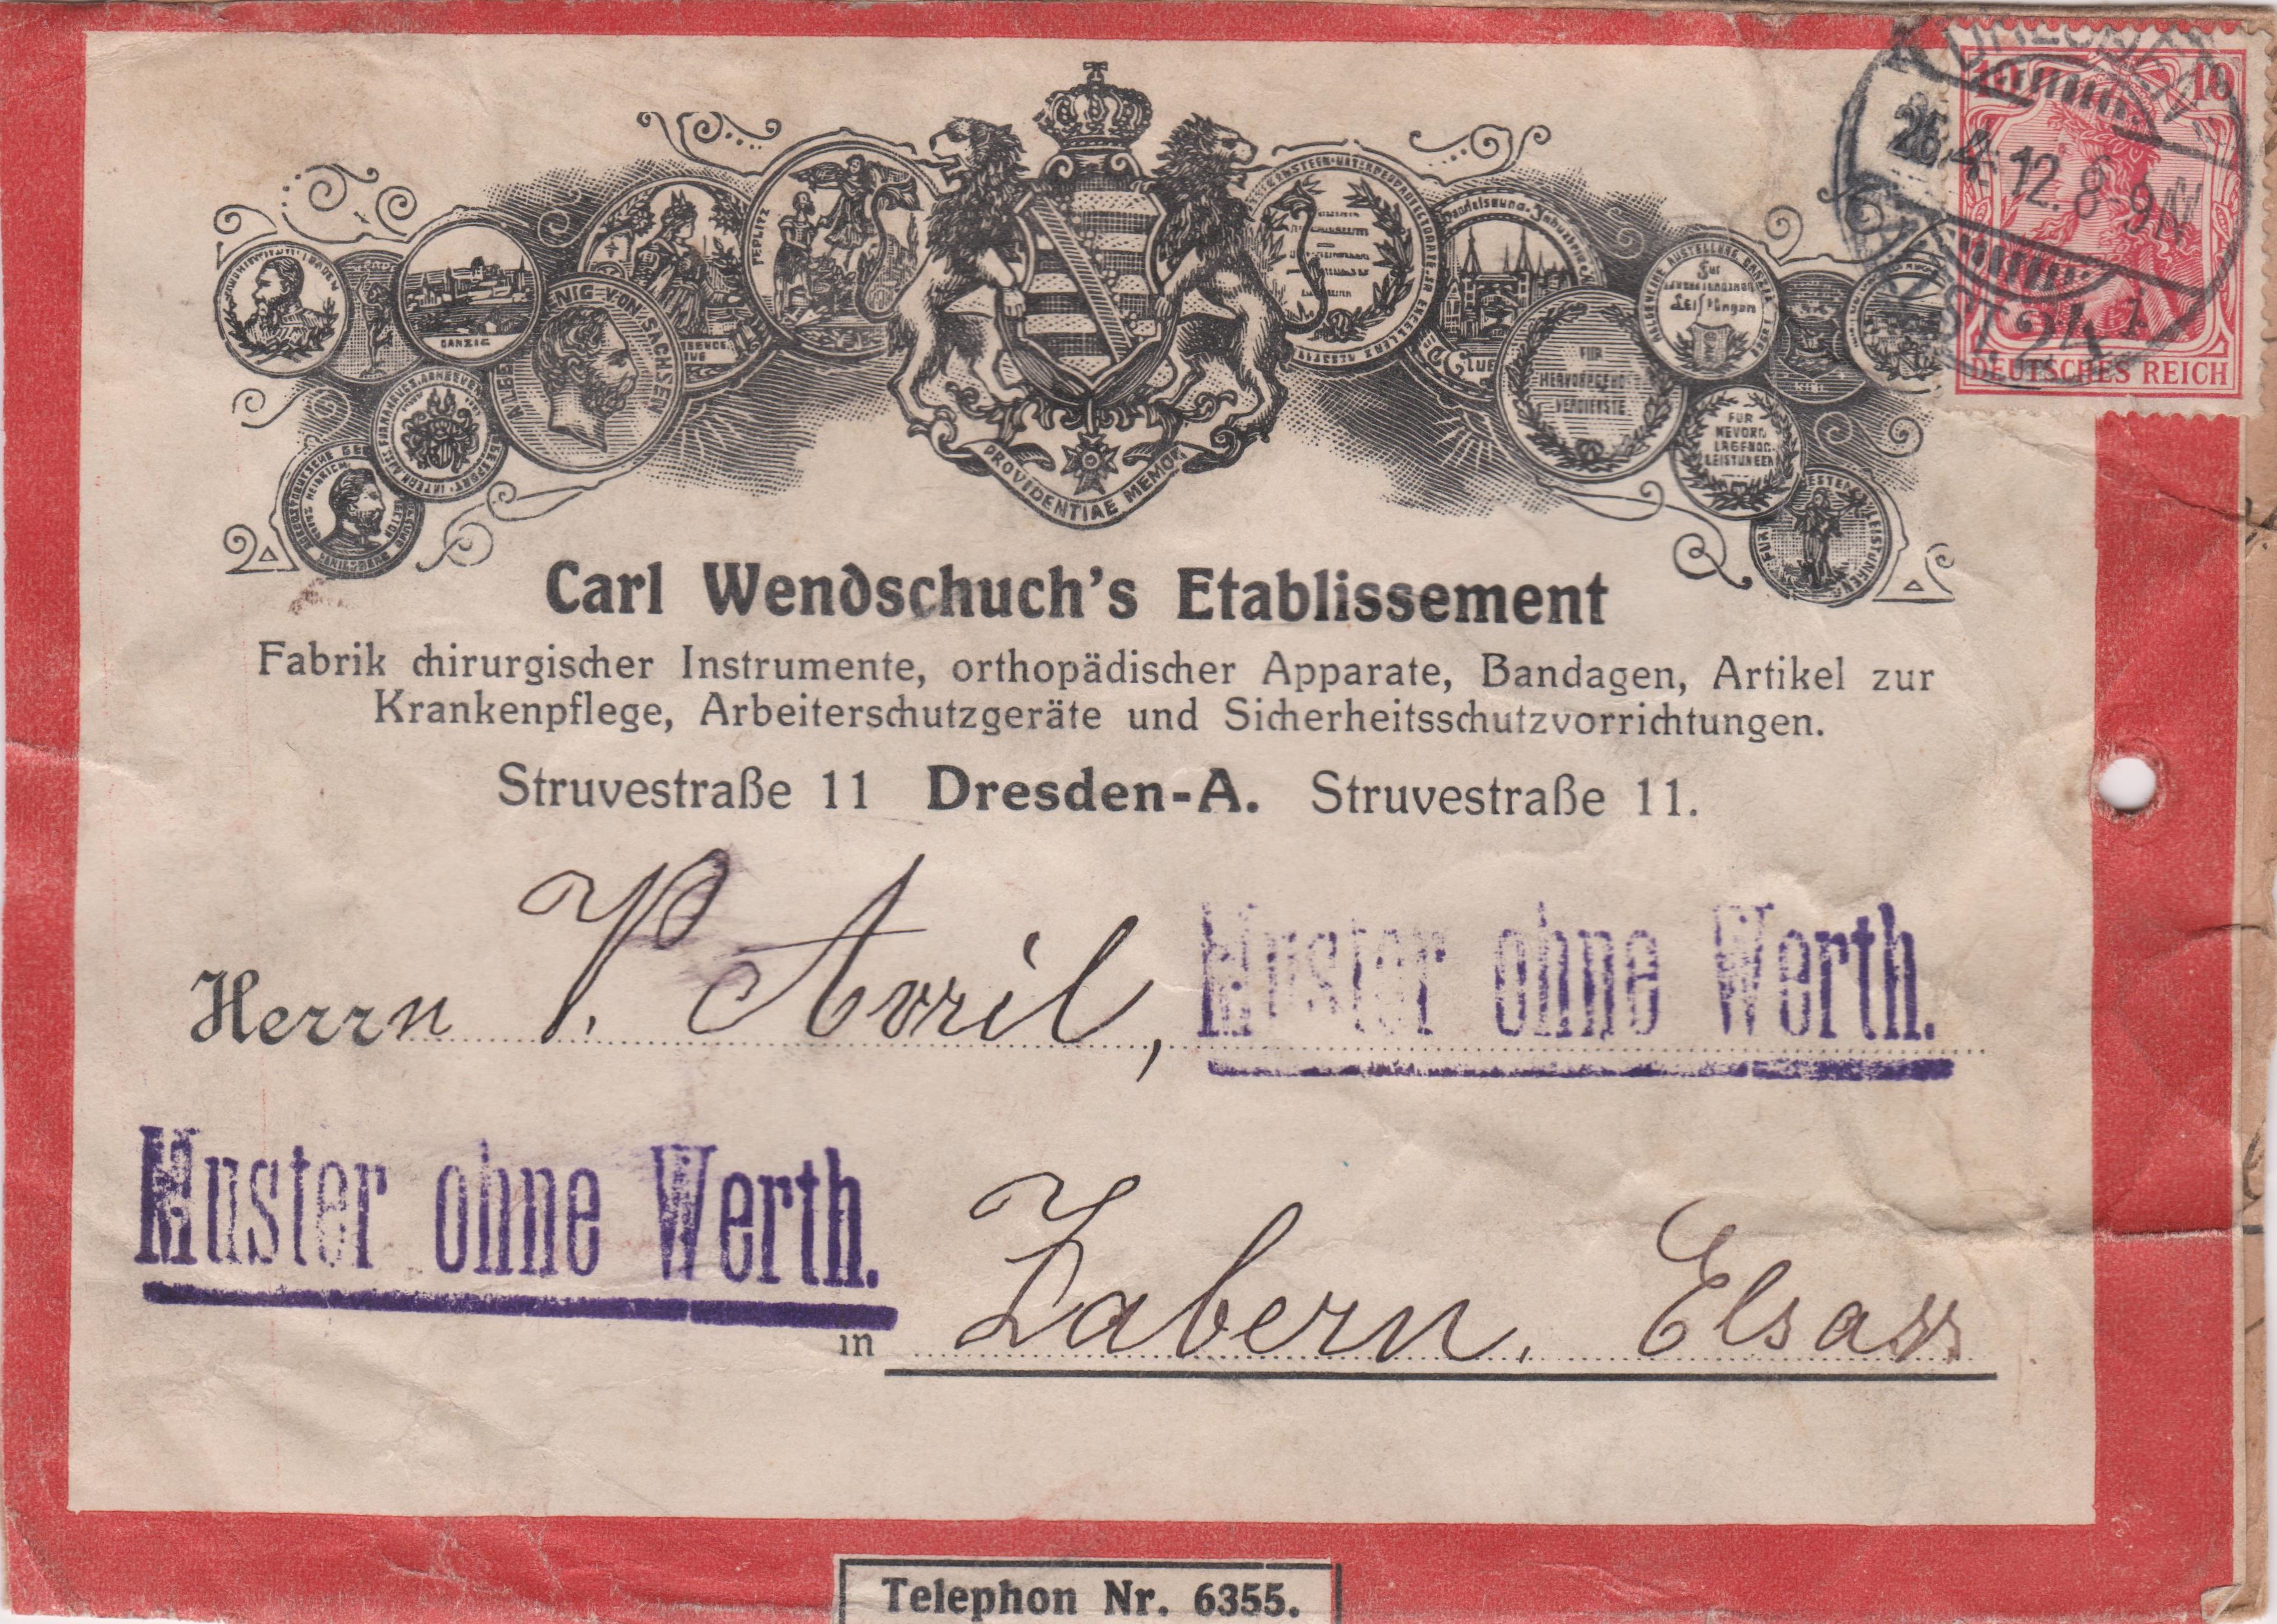 DRESDEN
10 10
26.4.12. 8-9N
ALTST. 24
DEUTSCHES REICH
TEPLITZ
DANZIG
ALBERT KÖNIG VON SACHSEN
FÜR
HERVORRAGENDE
VERDIENSTE
Für
Leistungen
KIEL
FÜR
HERVORRAGENDE
LEISTUNGEN
PROVIDENTIAE MEMOR
Carl Wendschuch's Etablissement
Fabrik chirurgischer Instrumente, orthopädischer Apparate, Bandagen, Artikel zur
Krankenpflege, Arbeiterschutzgeräte und Sicherheitsschutzvorrichtungen.
Struvestraße 11 Dresden-A. Struvestraße 11.
Herrn P. Avril, Muster ohne Werth.
Muster ohne Werth.
in Zabern. Elsass
Telephon Nr. 6355.